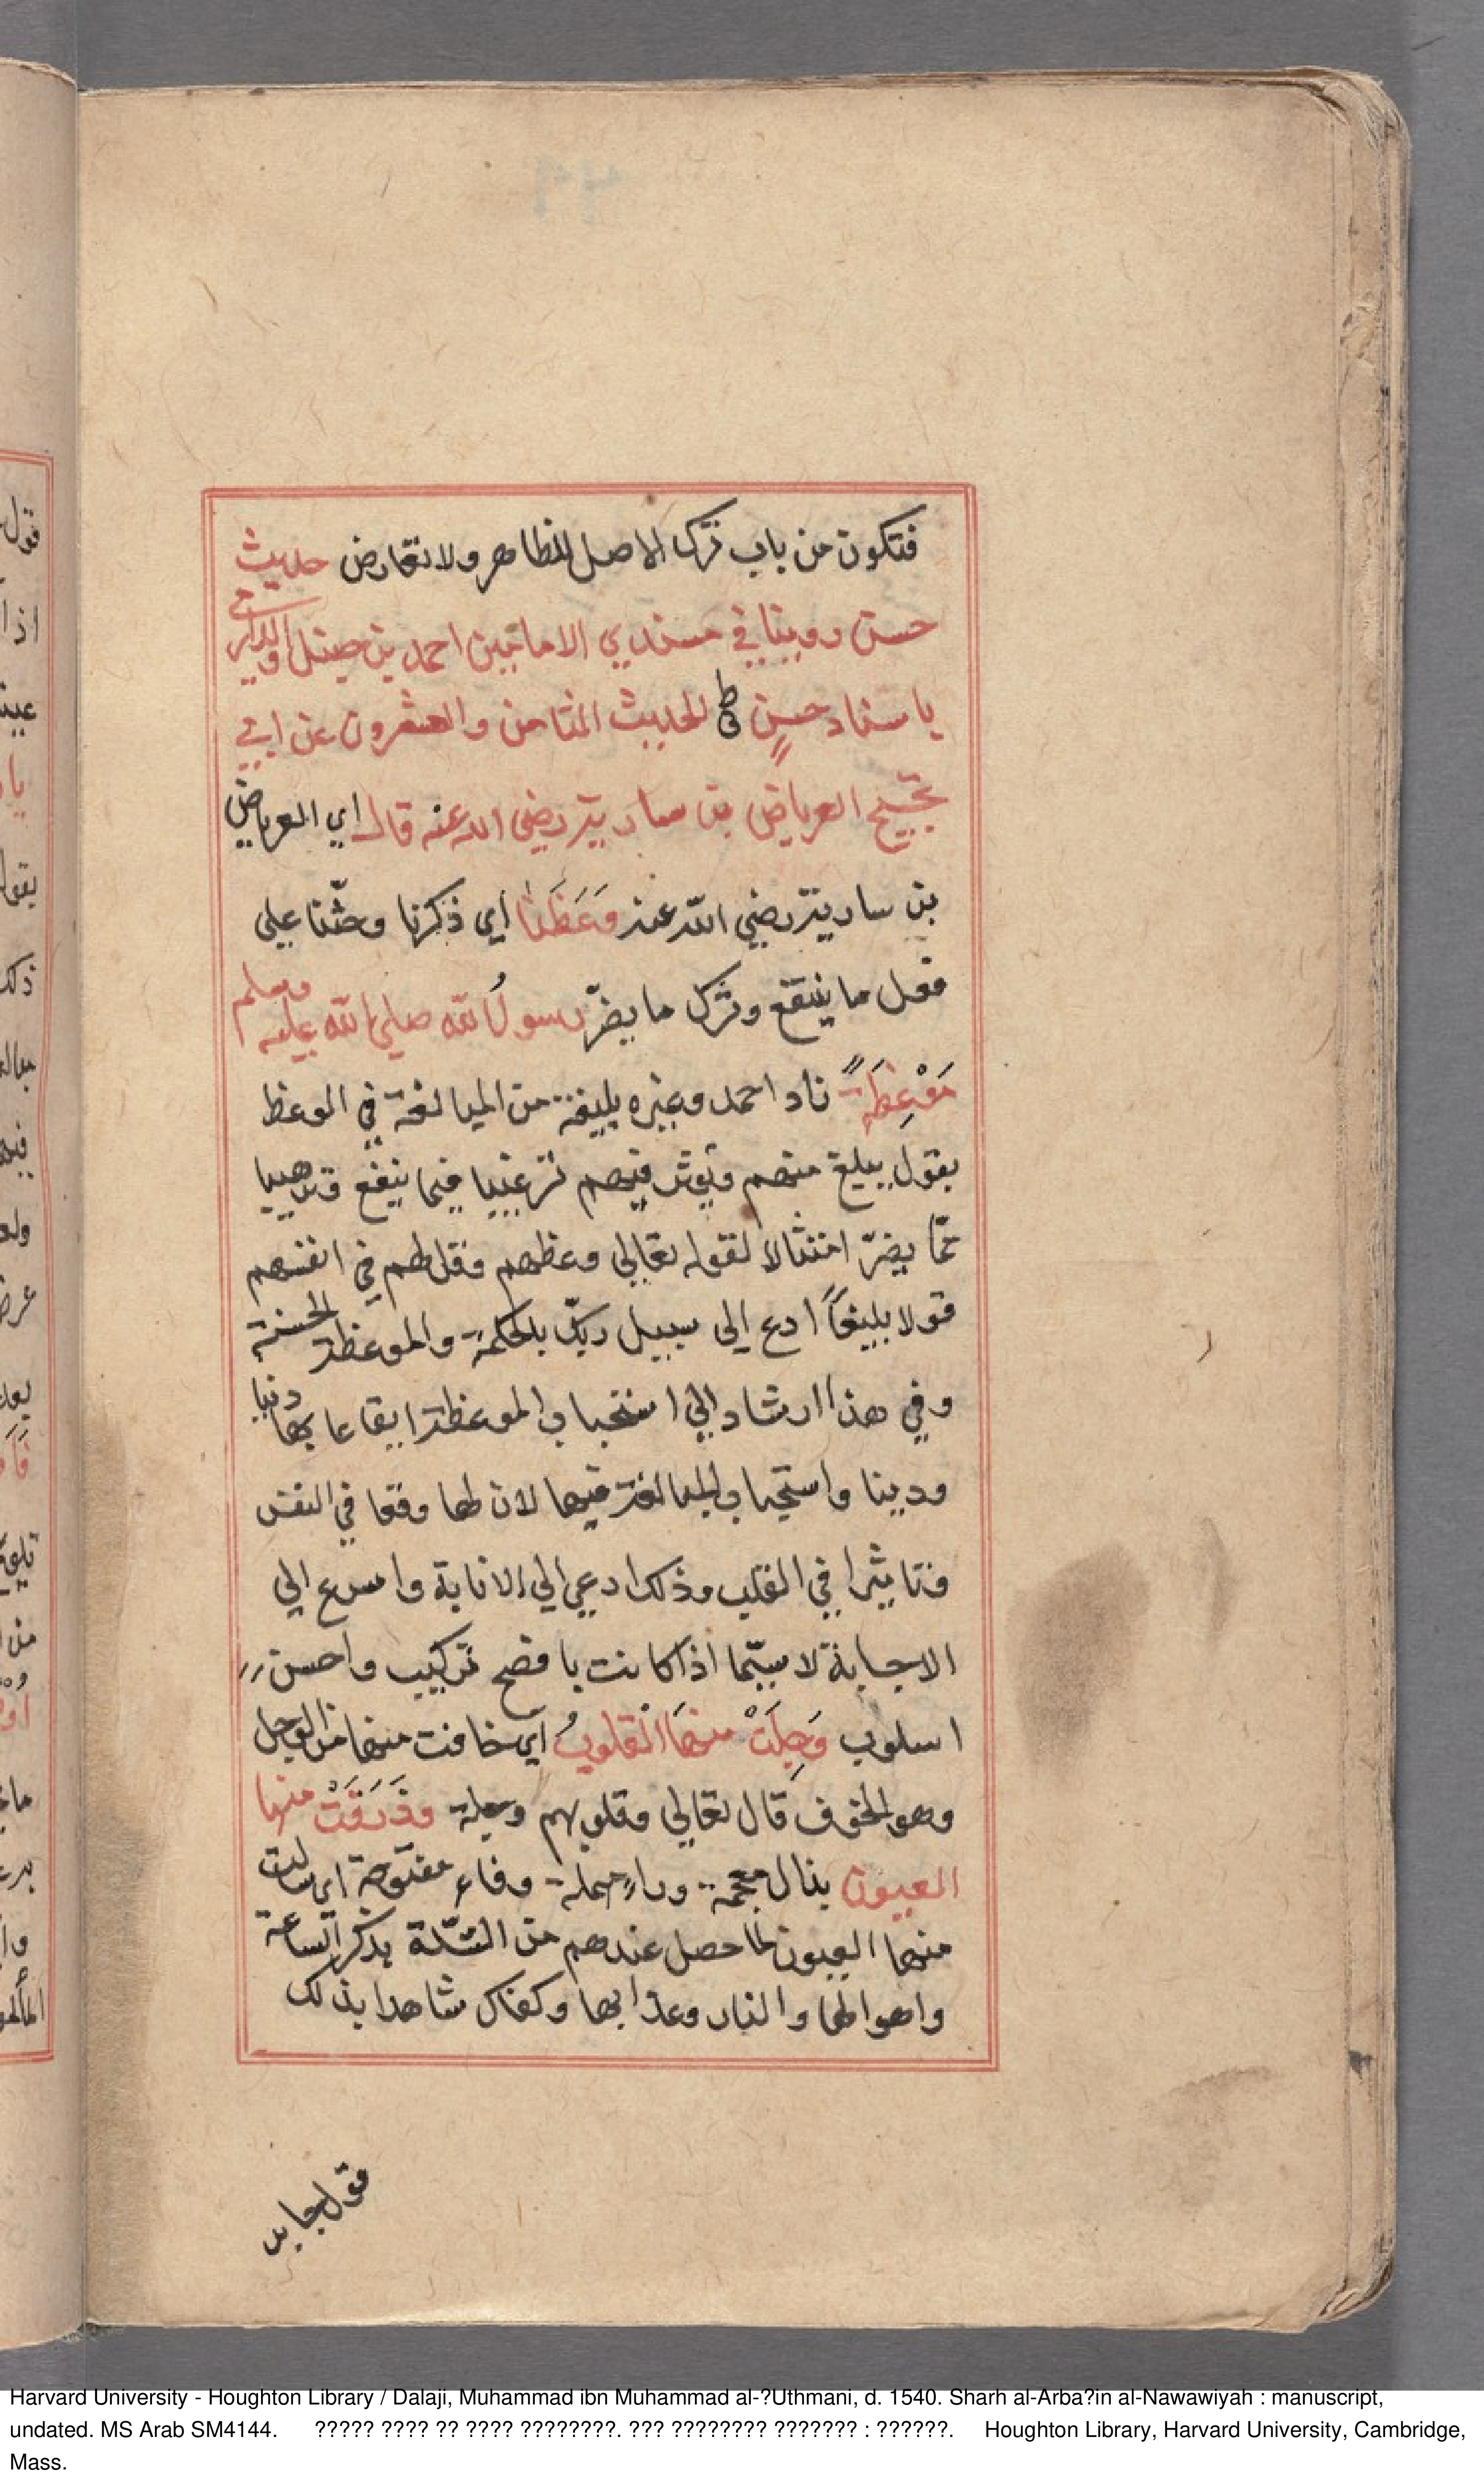 فتكون من باب ترك الاصل للظاهر ولا تعارض حديث
حسن روينا في مسندي الامامين احمد بن حنبل والدارمي
باسناد حسن الحديث الثامن والعشرون عن ابي
نجيح العرباض بن سارية رضي الله عنه قال اي العرباض
بن سارية رضي الله عنه وَعَظَنا أي ذكرنا وحثّنا على
فعل ما ينفع وترك ما يضرّ رسولُ الله صلى الله عليه وسلم
مَوْعِظَةً زاد احمد وغيره بليغة من المبالغة في الموعظ
بقول يبلغ منهم ويؤثر فيهم ترغيبا فيما ينفع وترهيبا
عمّا يضرّ امتثالا لقوله تعالى وعظهم وقل لهم في انفسهم
قولا بليغاً ادع الى سبيل ربّك بالحكمة والموعظة الحسنة
وفي هذا ارشاد الى استحباب الموعظة ايقاعا بها دنيا
ودينا واستحباب المبالغة فيها لان لها وقعا في النفس
وتاثيرا في القلب وذلك ادعى الى الانابة واسرع الى
الاجابة لا سيّما اذا كانت بافصح تركيب واحسن
اسلوب وَجِلَتْ منهَا القلوبُ أي خافت منها من الوجل
وهو الخوف قال تعالى وقلوبهم وجلة وذَرَفَتْ منها
العيون بذال معجمة وراءٍ مهملة وفاء مفتوحة اي سالت
منها العيون لما حصل عندهم من الشدّة بذكر الساعة
واهوالها والنار وعذابها وكفاك شاهدا بذلك
قول جابر
Harvard University - Houghton Library / Dalaji, Muhammad ibn Muhammad al-?Uthmani, d. 1540. Sharh al-Arba?in al-Nawawiyah : manuscript,
undated. MS Arab SM4144. ????? ???? ?? ???? ????????. ??? ???????? ??????? : ??????. Houghton Library, Harvard University, Cambridge,
Mass.